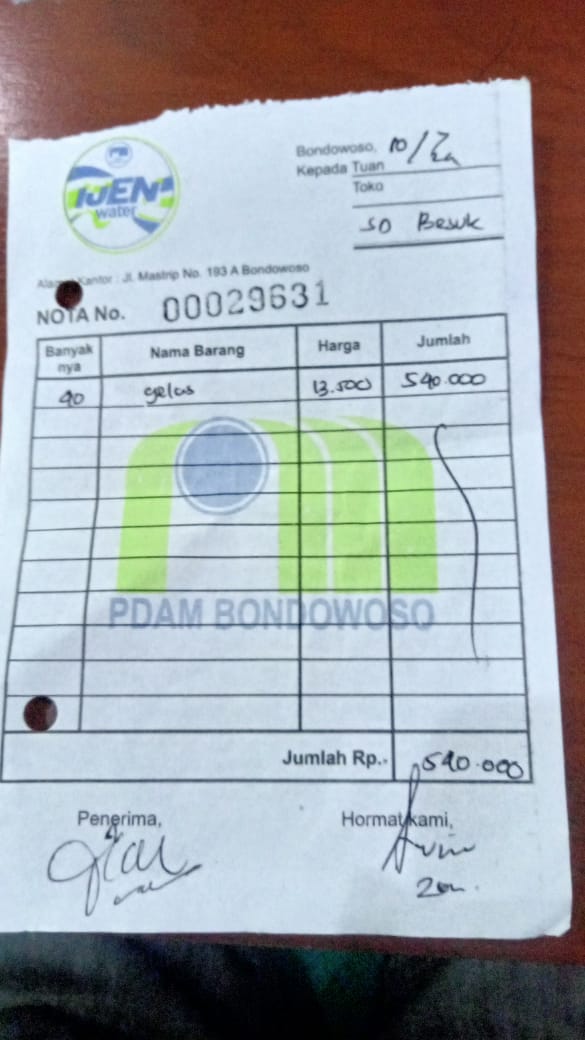 IJEN
water
Bondowoso, 10/
Kepada Tuan
Toko
SD Besuk
Kantor : Jl. Mastrip No. 193 A Bondowoso
NOTA No. 00029631
Banyak nya Nama Barang Harga Jumlah
40 gelas 13.500 540.000
PDAM BONDOWOSO
Jumlah Rp.- 540.000
Penerima, Hormat kami,